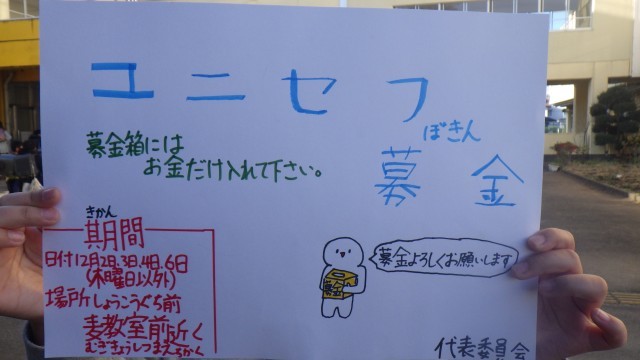 ユニセフ
ぼきん
募金
募金箱には
お金だけ入れて下さい。
きかん
期間
日付12月2日.3日.4日.6日
(木曜日以外)
場所しょうこうぐち前
麦教室前近く
むぎきょうしつまえちかく
募金よろしくお願いします
募金
代表委員会